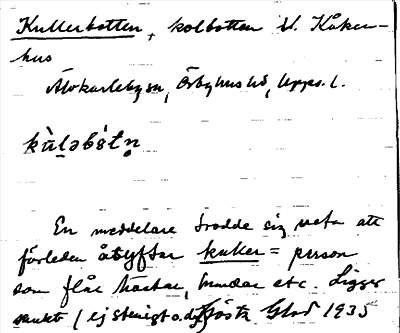 Kullerbotten, kolbotten t. Kåker-
hus
Älvkarleby sn, Örbyhus hd, Upps. l.
kùləbòtn̥
En meddelare trodde sig veta att
förleden åsyftar kuller = person
som flår hästar, hundar etc. Ligger
sankt (ej stenigt o. dyl.) Gösta Glad 1935